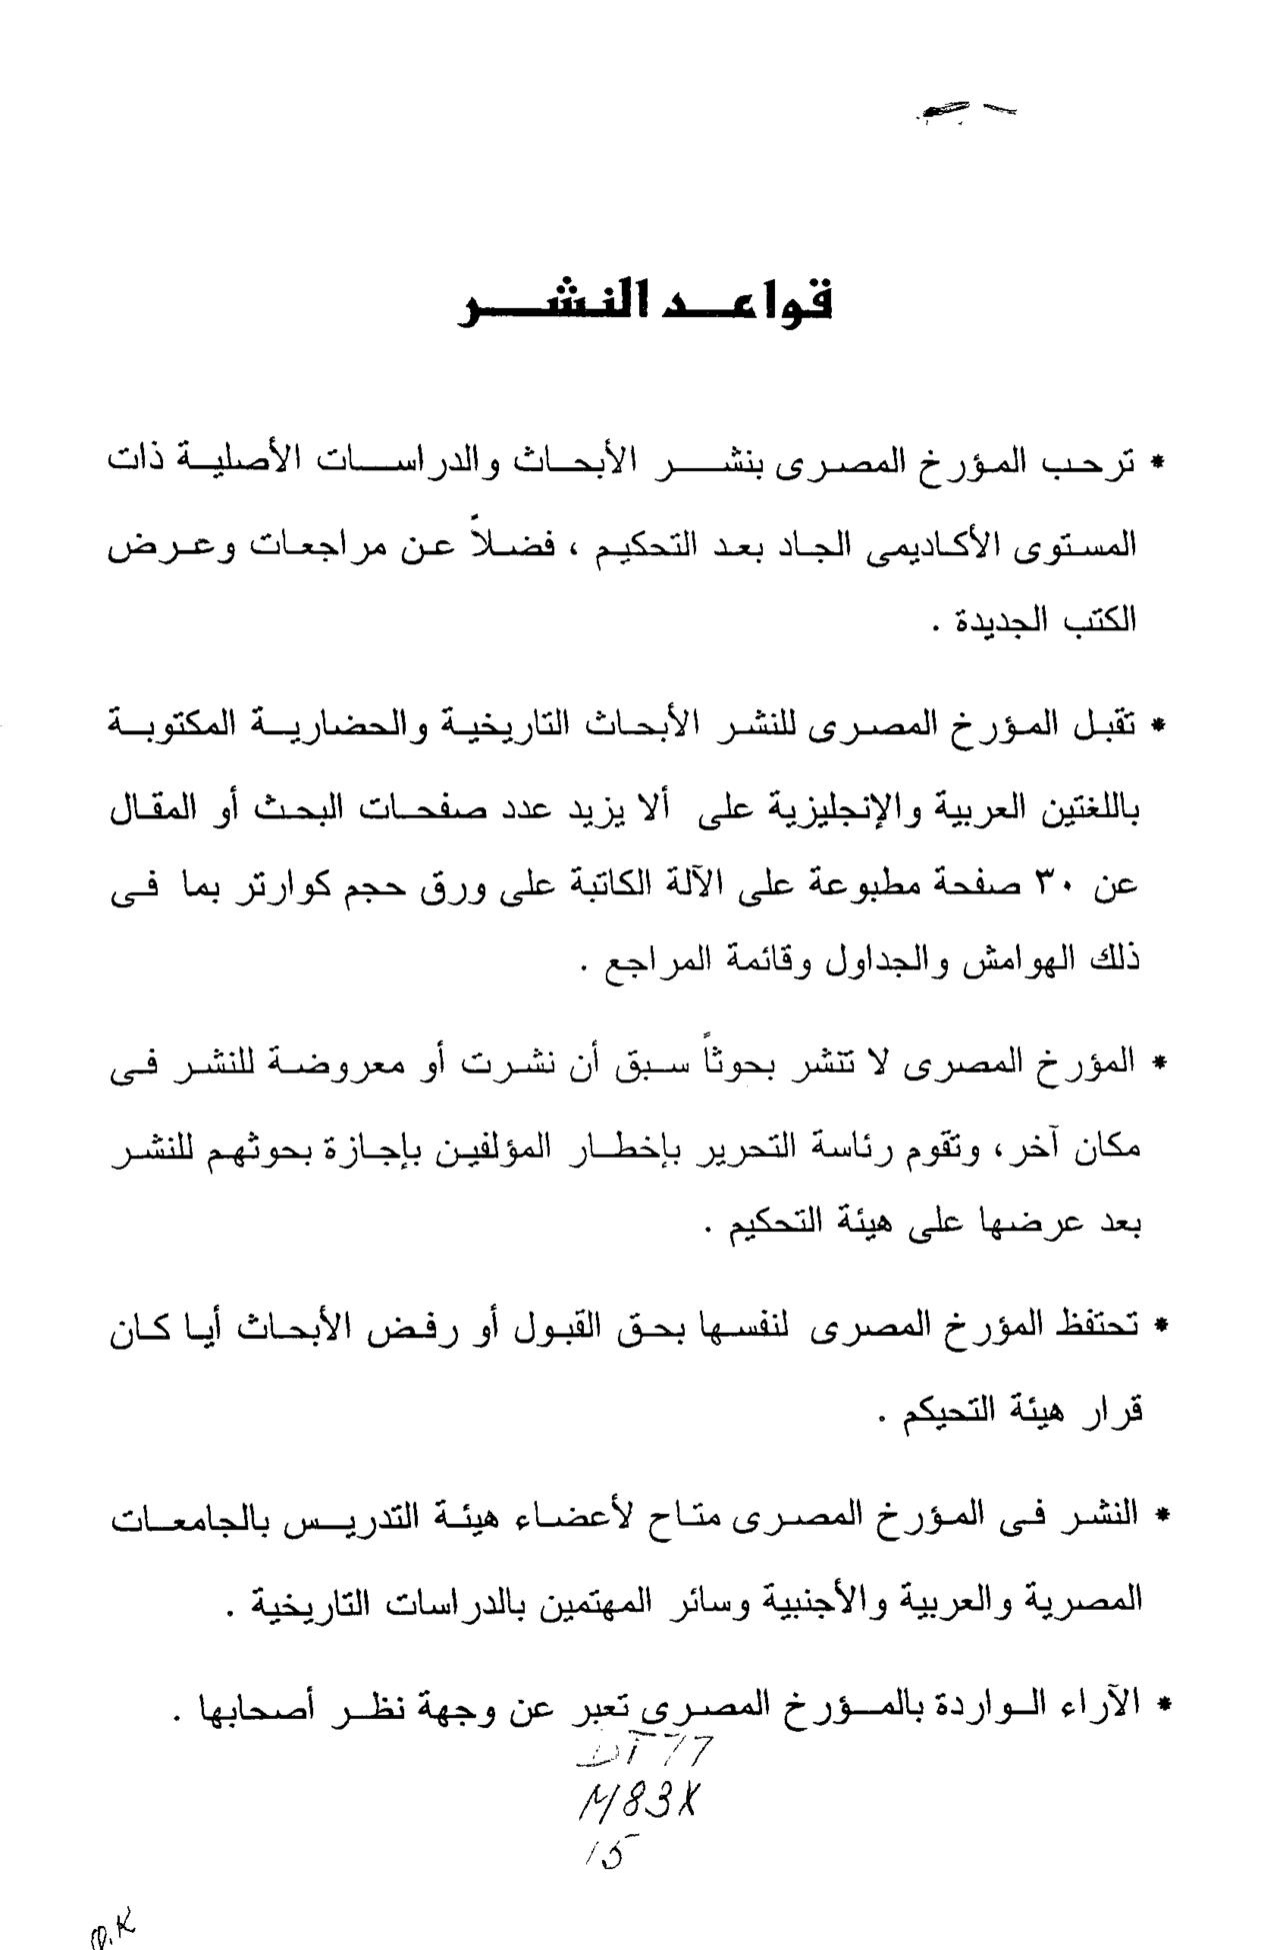 قواعد النشر
* ترحب المؤرخ المصرى بنشر الأبحاث والدراسات الأصلية ذات
المستوى الأكاديمى الجاد بعد التحكيم ، فضلاً عن مراجعات وعرض
الكتب الجديدة .
* تقبل المؤرخ المصرى للنشر الأبحاث التاريخية والحضارية المكتوبة
باللغتين العربية والإنجليزية على ألا يزيد عدد صفحات البحث أو المقال
عن ٣٠ صفحة مطبوعة على الآلة الكاتبة على ورق حجم كوارتر بما فى
ذلك الهوامش والجداول وقائمة المراجع .
* المؤرخ المصرى لا تنشر بحوثاً سبق أن نشرت أو معروضة للنشر فى
مكان آخر، وتقوم رئاسة التحرير بإخطار المؤلفين بإجازة بحوثهم للنشر
بعد عرضها على هيئة التحكيم .
* تحتفظ المؤرخ المصرى لنفسها بحق القبول أو رفض الأبحاث أيا كان
قرار هيئة التحيكم .
* النشر فى المؤرخ المصرى متاح لأعضاء هيئة التدريس بالجامعات
المصرية والعربية والأجنبية وسائر المهتمين بالدراسات التاريخية .
* الآراء الواردة بالمؤرخ المصرى تعبر عن وجهة نظر أصحابها .
DT77
M83X
15